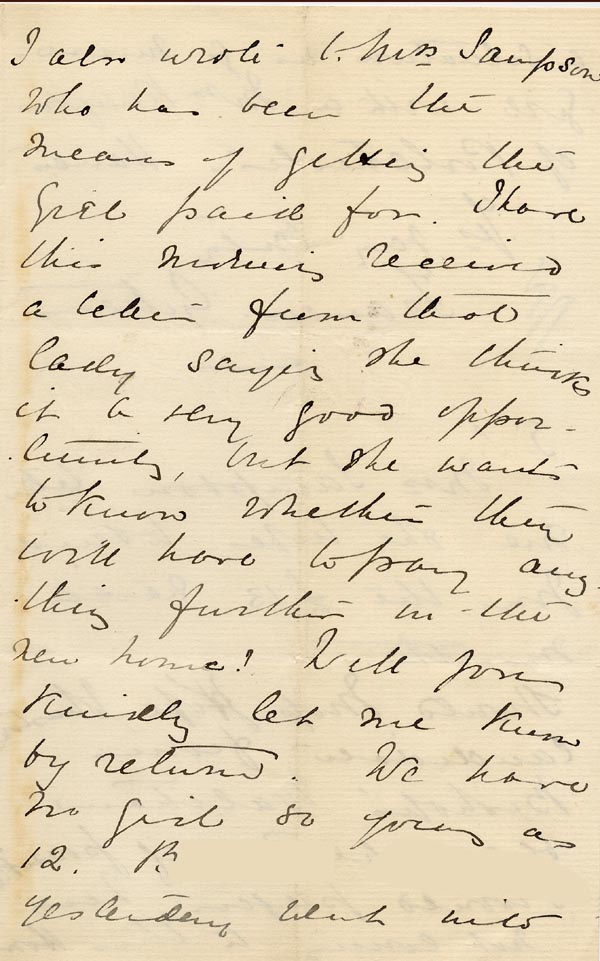 I also wrote to Miss Sampson
who has been the
means of getting the
Girl paid for. I have
this morning received
a letter from that
lady saying she thinks
it a very good oppor-
tunity, but she wants
to know whether they
will have to pay any
thing further in the
new home! Will you
kindly let me know
by return. We have
no girl so young as
12.
yesterday went into